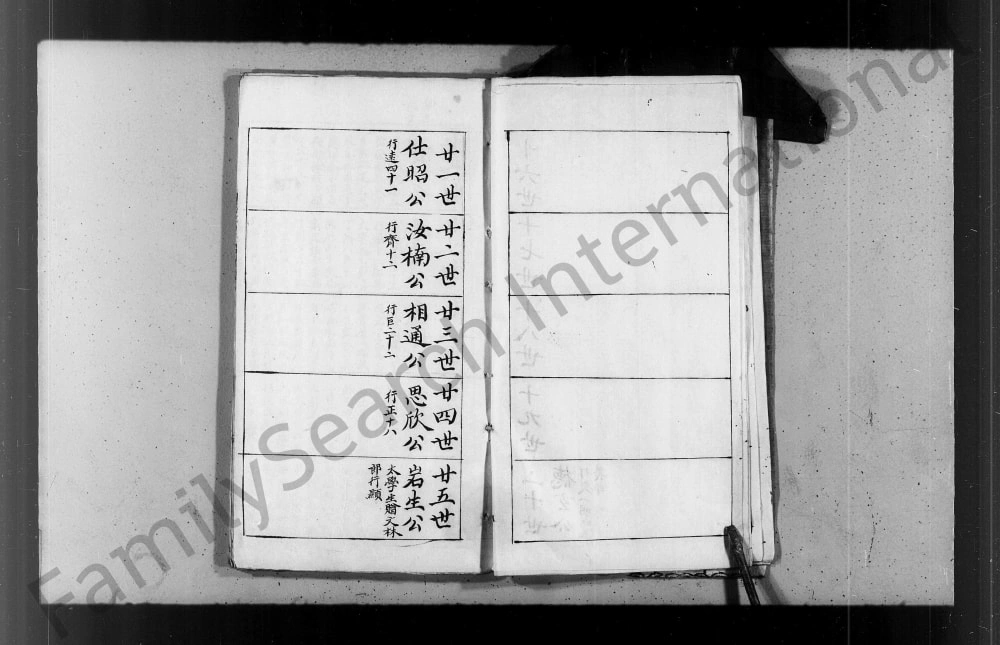 廿一世
仕昭公
行遠四十一
廿二世
汝楠公
行齊十二
廿三世
相通公
行巨二十二
廿四世
思欣公
行正十八
廿五世
岩生公
太學生贈文林
郎行顯
十六世
十七世
十八世
十九世
二十世
FamilySearch International